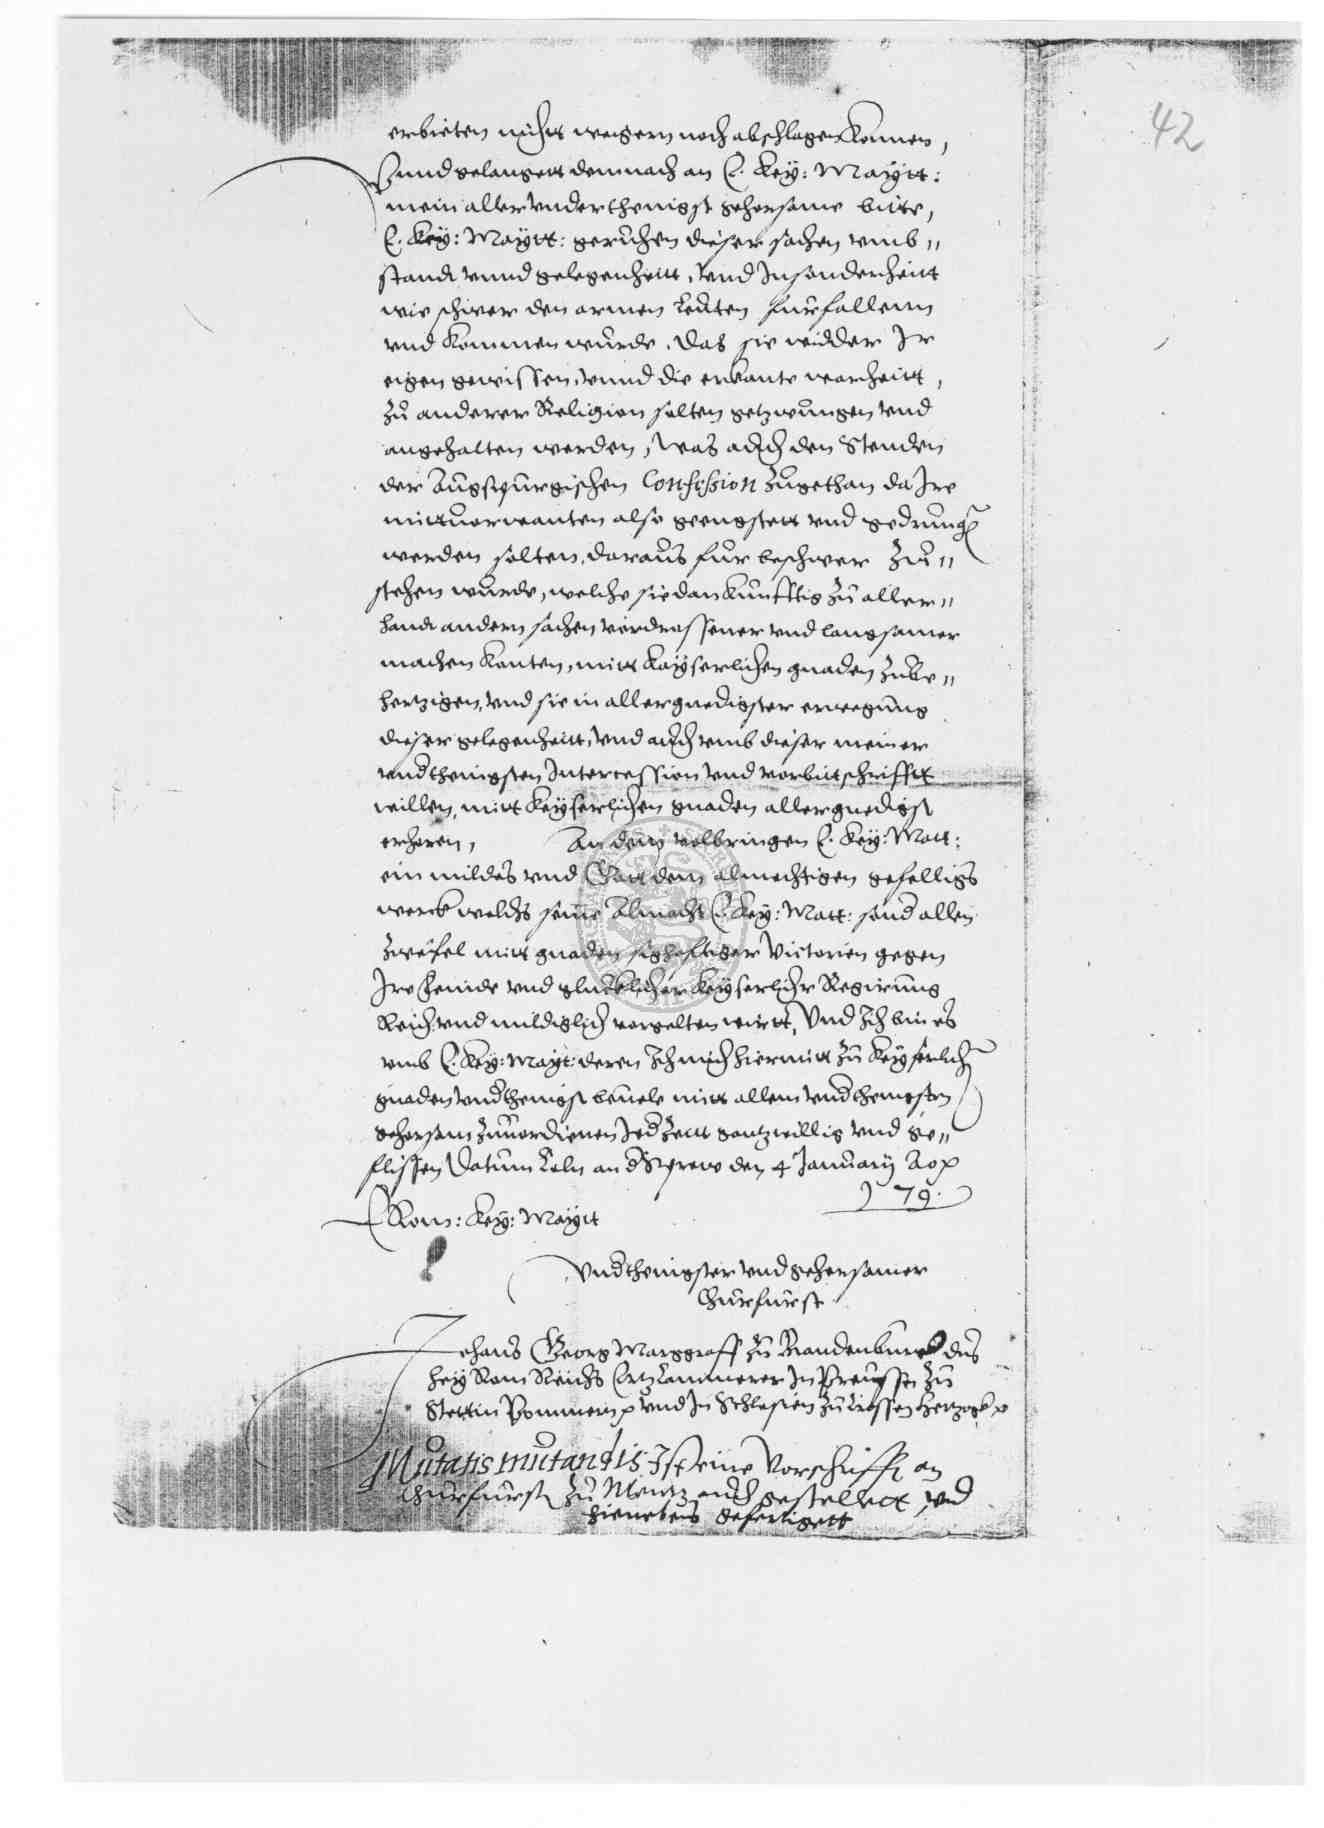 42
erbieten nichts weigern noch abschlagen konnen,
Vnnd gelanget demnach an E. Key: Maytt:
mein aller vnderthenigst gehorsame bitte,
E. Key: Maytt: geruhen dieser sachen vmb"
standt vnnd gelegenheitt, vnd Insonderheitt
wie schwer den armen Leuten furfallenn
vnd kommen wurde, das sie widder Ir
eigen gewissen, vnnd die erkante warheitt,
zu anderer Religion solten getzwungen vnd
angehalten werden, was auch den Stenden
der Augspurgischen Confession zugethan da Ire
mittuorwanten also geengstett vnd gedrungen
werden solten, daraus fur beschwer zu"
stehen wurde, welche sie dan kunfftig zu aller"
handt andern sachen verdrossener vnd langsamer
machen konten, mitt Kayserlichen gnaden zube"
hertzigen, vnd sie in allergnedigster erwegung
dieser gelegenheitt, vnd auch vmb dieser meiner
vndthenigsten Intercession vnd vorbittschrifftt
willen, mitt Keyserlichen gnaden allergnedigst
erhoren, An dem volbringen E. Key: Matt:
ein mildes vnd Gott dem almechtigen gefelligs
werck welchs seine Almacht E. Key: Matt: sond allen
zweifel mitt gnaden sighafftiger Victorien gegen
Ire feinde vnd glucklicher Keyserlicher Regirung
Reich vnd mildiglich vorgelten wirtt, Vnd Ich bin es
vmb E. Key: Mayt: deren Ich mich hiermitt zu Keyserlichen
gnaden vndthenigst beuele mitt allem vndthenigsten
gehorsam zuuordienen Jedzeitt gantzwillig vnd ge"
flissen Datum Coln an d Sprew den 4 January Ao p
79.
E Rom: Key: Maytt
Vndthenigster vnd gehorsamer
Churfurst
Johans Georg Marggraff zu Brandenburg des
heyl Rom Reichs Ertz Cammerer In Preussen zu
Stettin Pommern p vnd In Schlesien zu Crossen hertzogk p
Mutatis mutandis Ist eine Vorschrifft an
Churfurst zu Mentz auch gestellett vnd
hienebens gefertigett